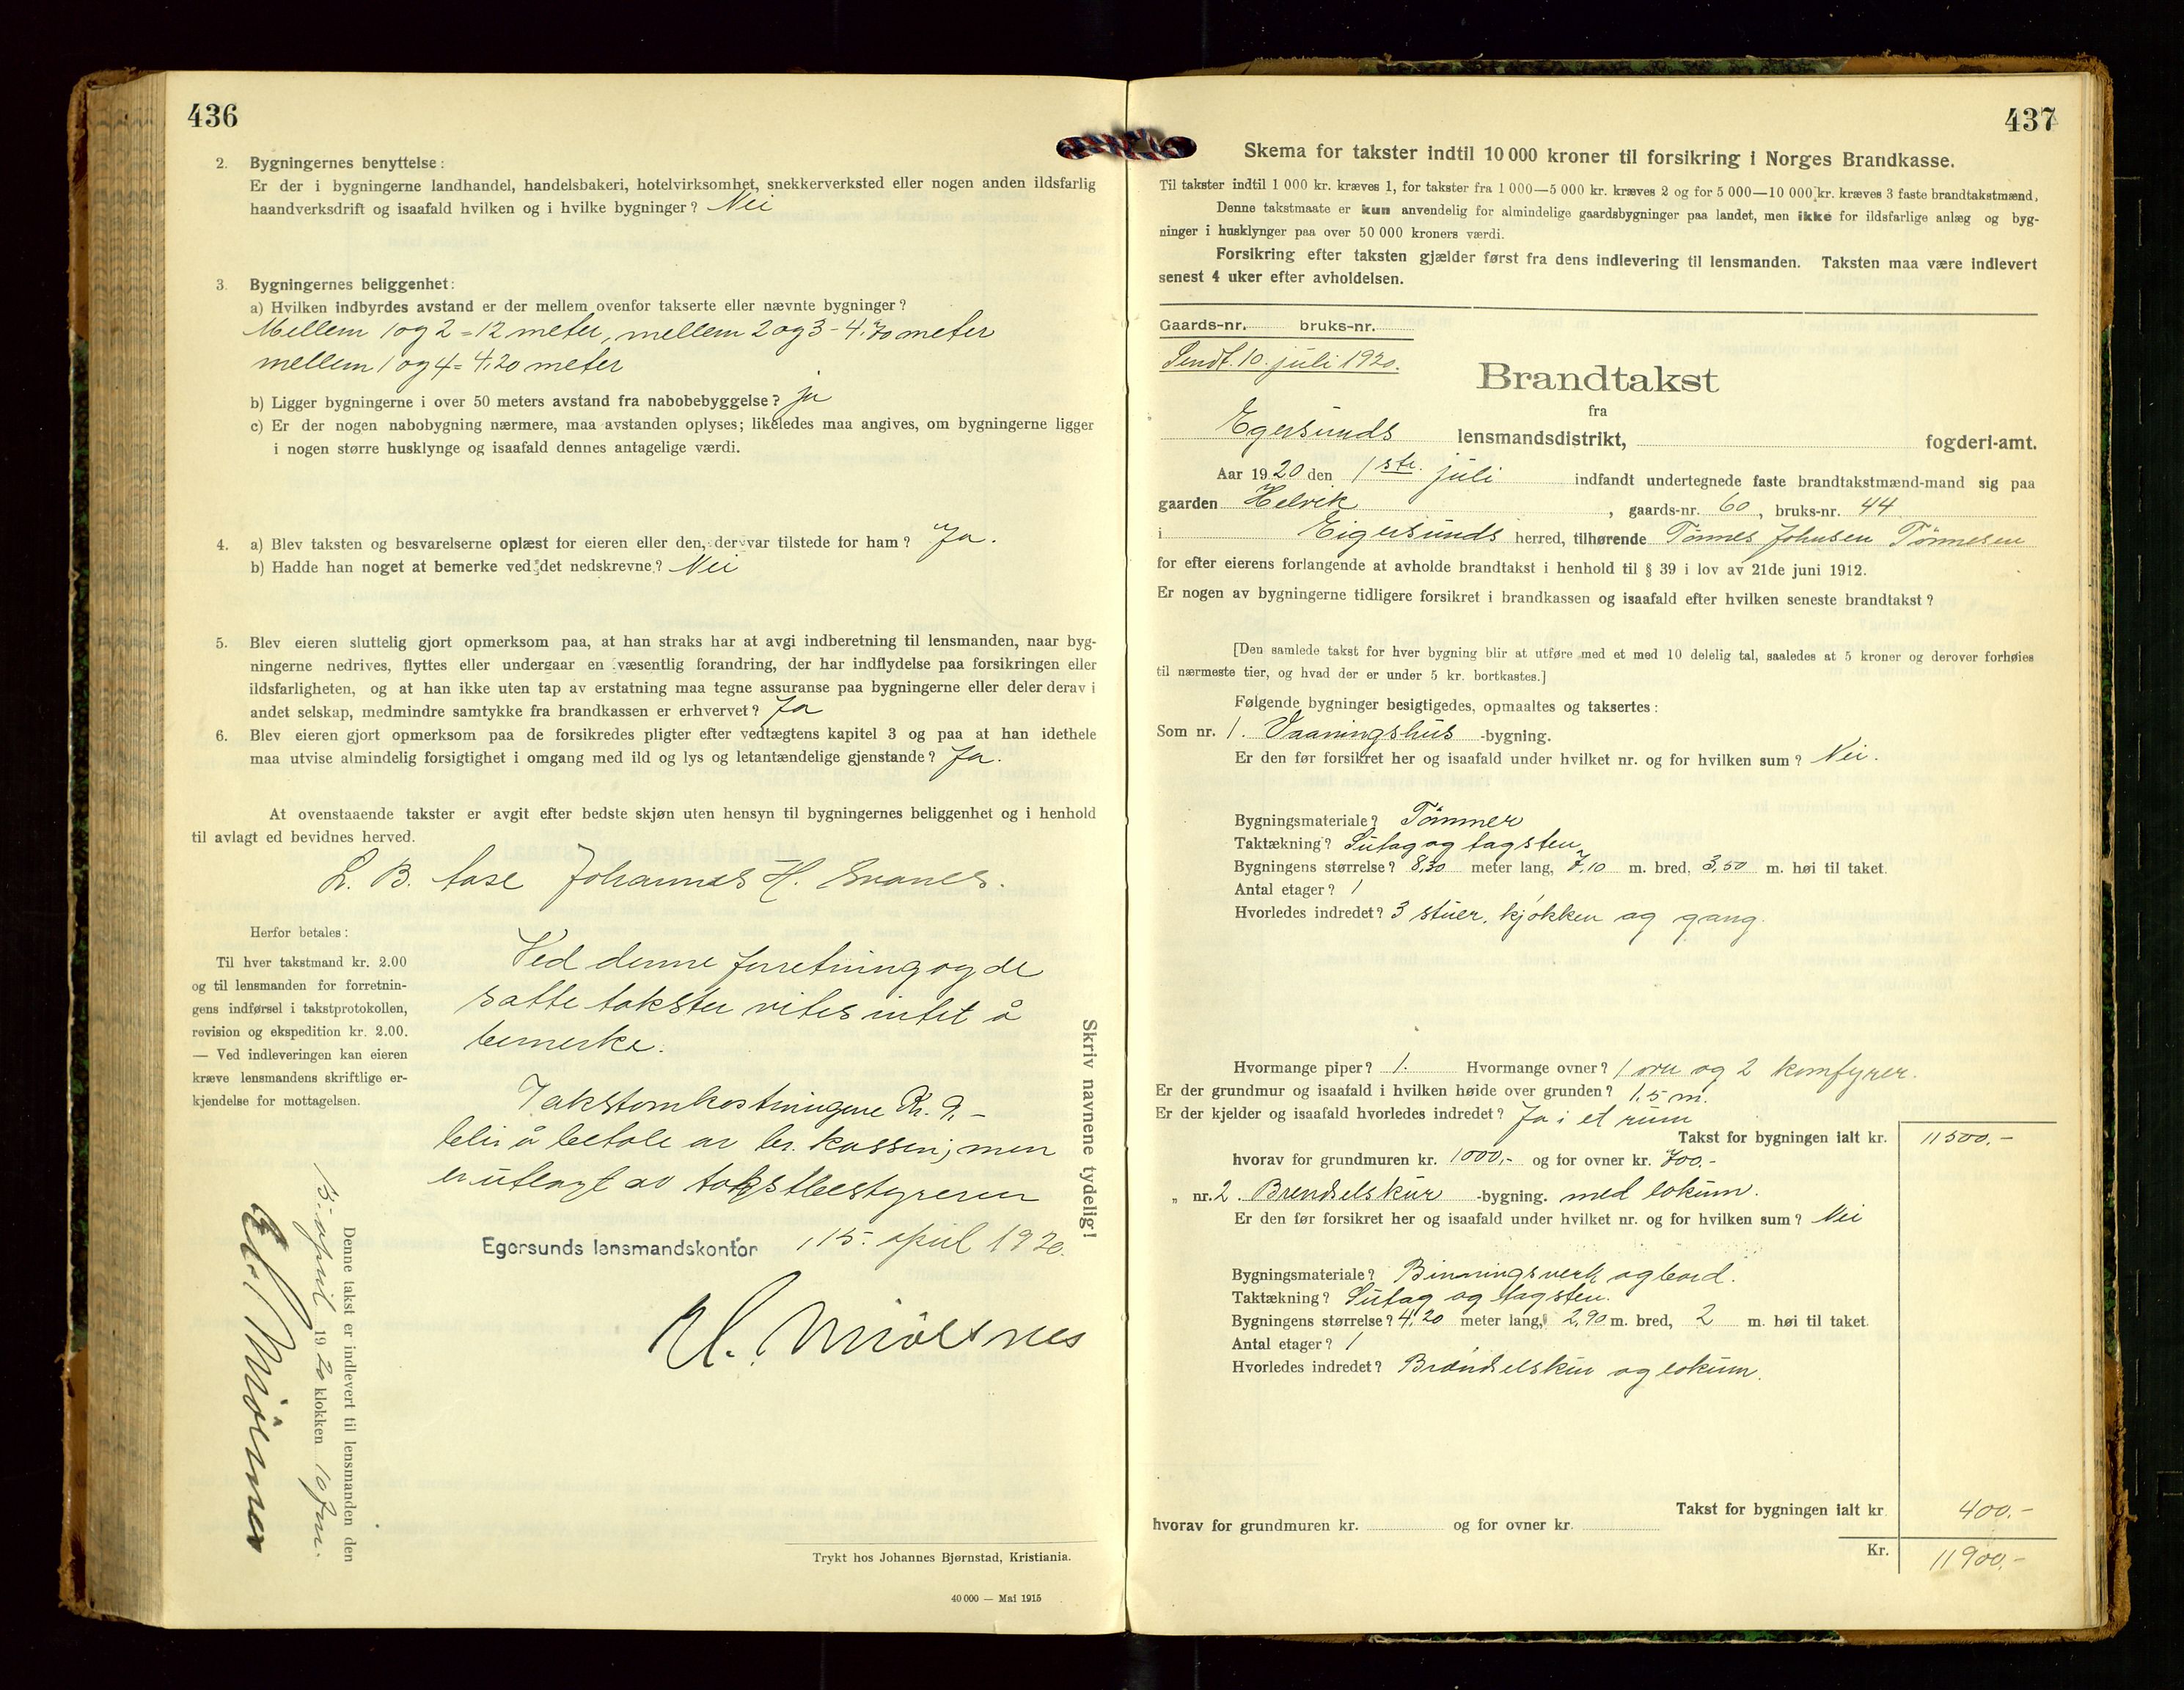 436
2. Bygningernes benyttelse:
Er der i bygningerne landhandel, handelsbakeri, hotelvirksomhet, snekkerverksted eller nogen anden ildsfarlig
haandverksdrift og isaafald hvilken og i hvilke bygninger? Nei
3. Bygningernes beliggenhet:
a) Hvilken indbyrdes avstand er der mellem ovenfor takserte eller nævnte bygninger?
Mellem 1 og 2 = 12 meter, mellem 2 og 3 - 4,70 meter
mellem 1 og 4 = 4,20 meter
b) Ligger bygningerne i over 50 meters avstand fra nabobebyggelse? ja
c) Er der nogen nabobygning nærmere, maa avstanden oplyses; likeledes maa angives, om bygningerne ligger
i nogen større husklynge og isaafald dennes antagelige værdi.
4. a) Blev taksten og besvarelserne oplæst for eieren eller den, der var tilstede for ham? Ja.
b) Hadde han noget at bemerke ved det nedskrevne? Nei
5. Blev eieren sluttelig gjort opmerksom paa, at han straks har at avgi indberetning til lensmanden, naar byg-
ningerne nedrives, flyttes eller undergaar en væsentlig forandring, der har indflydelse paa forsikringen eller
ildsfarligheten, og at han ikke uten tap av erstatning maa tegne assuranse paa bygningerne eller deler derav i
andet selskap, medmindre samtykke fra brandkassen er erhvervet? Ja
6. Blev eieren gjort opmerksom paa de forsikredes pligter efter vedtægtens kapitel 3 og paa at han idethele
maa utvise almindelig forsigtighet i omgang med ild og lys og letantændelige gjenstande? Ja.
At ovenstaaende takster er avgit efter bedste skjøn uten hensyn til bygningernes beliggenhet og i henhold
til avlagt ed bevidnes herved.
L. B. Aase Johannes H. Svanes.
Herfor betales:
Til hver takstmand kr. 2.00
og til lensmanden for forretnin-
gens indførsel i takstprotokollen,
revision og ekspedition kr. 2.00.
— Ved indleveringen kan eieren
kræve lensmandens skriftlige er-
kjendelse for mottagelsen.
Ved denne forretning og de
satte takster vites intet å
bemerke.
Takstomkostningene Kr. 9,-
blir å betale av br. kassen; men
er utlagt av takstbestyreren
Egersunds lensmandskontor, 15. april 1920.
Skriv navnene tydelig!
Denne takst er indlevert til lensmanden den
15. april 1920 klokken 10 fm.
Trykt hos Johannes Bjørnstad, Kristiania.
40 000 — Mai 1915
437
Skema for takster indtil 10 000 kroner til forsikring i Norges Brandkasse.
Til takster indtil 1 000 kr. kræves 1, for takster fra 1 000—5 000 kr. kræves 2 og for 5 000—10 000 kr. kræves 3 faste brandtakstmænd.
Denne takstmaate er kun anvendelig for almindelige gaardsbygninger paa landet, men ikke for ildsfarlige anlæg og byg-
ninger i husklynger paa over 50 000 kroners værdi.
Forsikring efter taksten gjælder først fra dens indlevering til lensmanden. Taksten maa være indlevert
senest 4 uker efter avholdelsen.
Gaards-nr. bruks-nr.
Sendt. 10. juli 1920.
Brandtakst
fra
Egersunds lensmandsdistrikt, fogderi-amt.
Aar 1920 den 1ste. juli indfandt undertegnede faste brandtakstmænd-mand sig paa
gaarden Helvik, gaards-nr. 60, bruks-nr. 44
i Eigersunds herred, tilhørende Tønnes Johnsen Tønnesen
for efter eierens forlangende at avholde brandtakst i henhold til § 39 i lov av 21de juni 1912.
Er nogen av bygningerne tidligere forsikret i brandkassen og isaafald efter hvilken seneste brandtakst?
[Den samlede takst for hver bygning blir at utføre med et med 10 delelig tal, saaledes at 5 kroner og derover forhøies
til nærmeste tier, og hvad der er under 5 kr. bortkastes.]
Følgende bygninger besigtigedes, opmaaltes og taksertes:
Som nr. 1. Vaaningshus -bygning.
Er den før forsikret her og isaafald under hvilket nr. og for hvilken sum? Nei.
Bygningsmateriale? Tømmer
Taktækning? Sutag og tagsten
Bygningens størrelse? 8,30 meter lang, 7,10 m. bred, 3,50 m. høi til taket.
Antal etager? 1
Hvorledes indredet? 3 stuer, kjøkken og gang.
Hvormange piper? 1. Hvormange ovner? 1 ovn og 2 komfyrer.
Er der grundmur og isaafald i hvilken høide over grunden? 1,5 m.
Er der kjelder og isaafald hvorledes indredet? Ja i et rum
Takst for bygningen ialt kr. 11500.-
hvorav for grundmuren kr. 1000,- og for ovner kr. 700.-
„ nr. 2. Brendselskur -bygning. med lokum.
Er den før forsikret her og isaafald under hvilket nr. og for hvilken sum? Nei
Bygningsmateriale? Binningsverk og bord.
Taktækning? Sutag og tagsten.
Bygningens størrelse? 4,20 meter lang, 2,90 m. bred, 2 m. høi til taket.
Antal etager? 1
Hvorledes indredet? Brændselskur og lokum.
Takst for bygningen ialt kr. 400.-
hvorav for grundmuren kr. og for ovner kr.
Kr. 11900.-